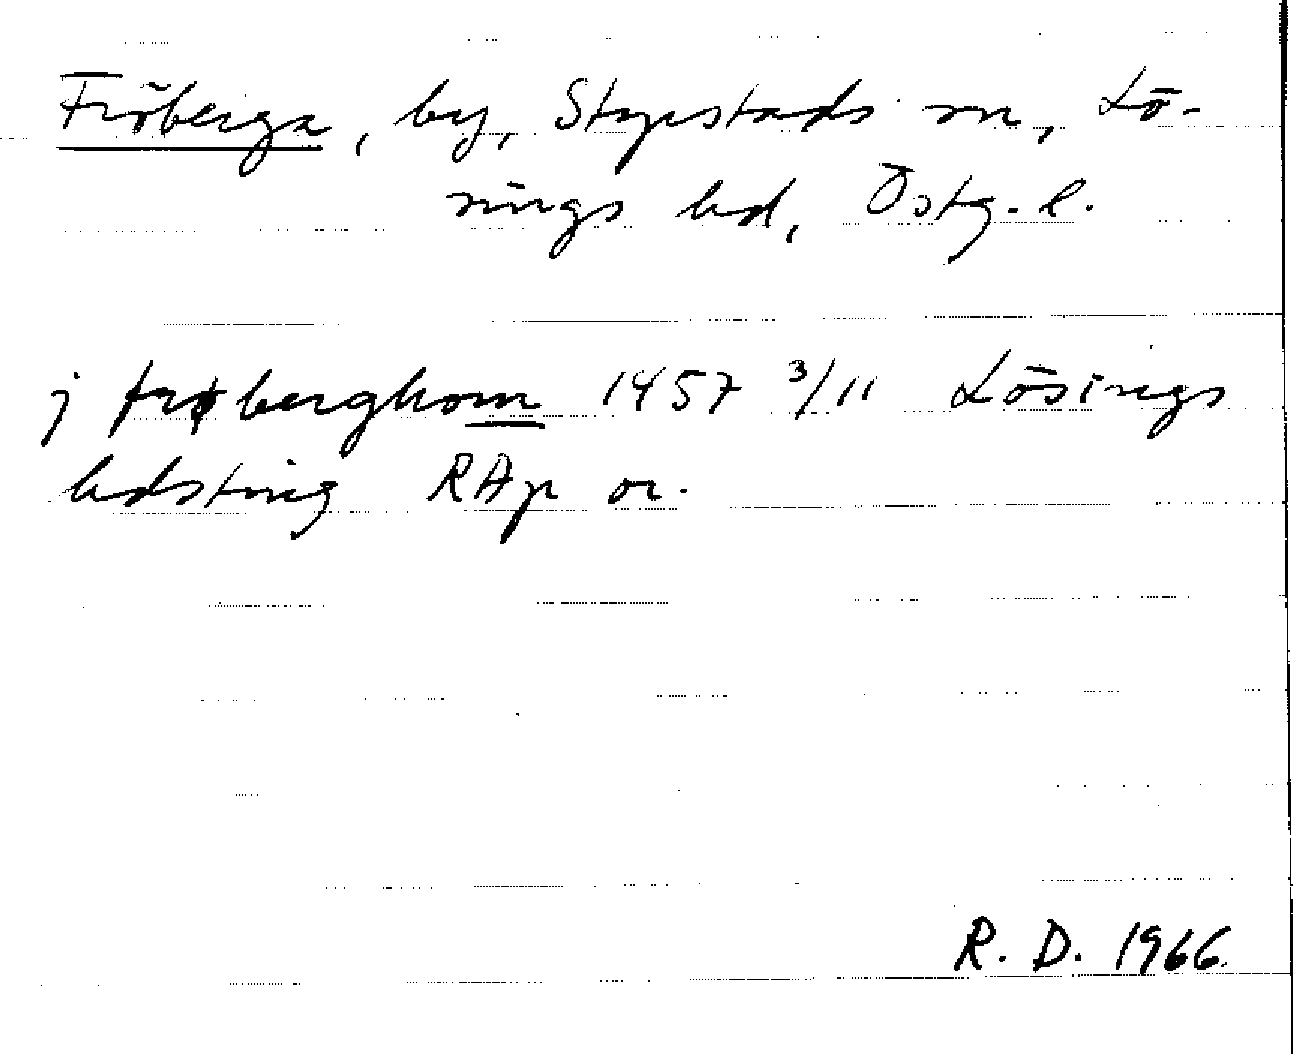 Fröberga, by, Styrstads sn, Lö-
sings hd, Östg. l.
j frøberghom 1457 3/11 Lösings
hdsting RAp or.
R. D. 1966.